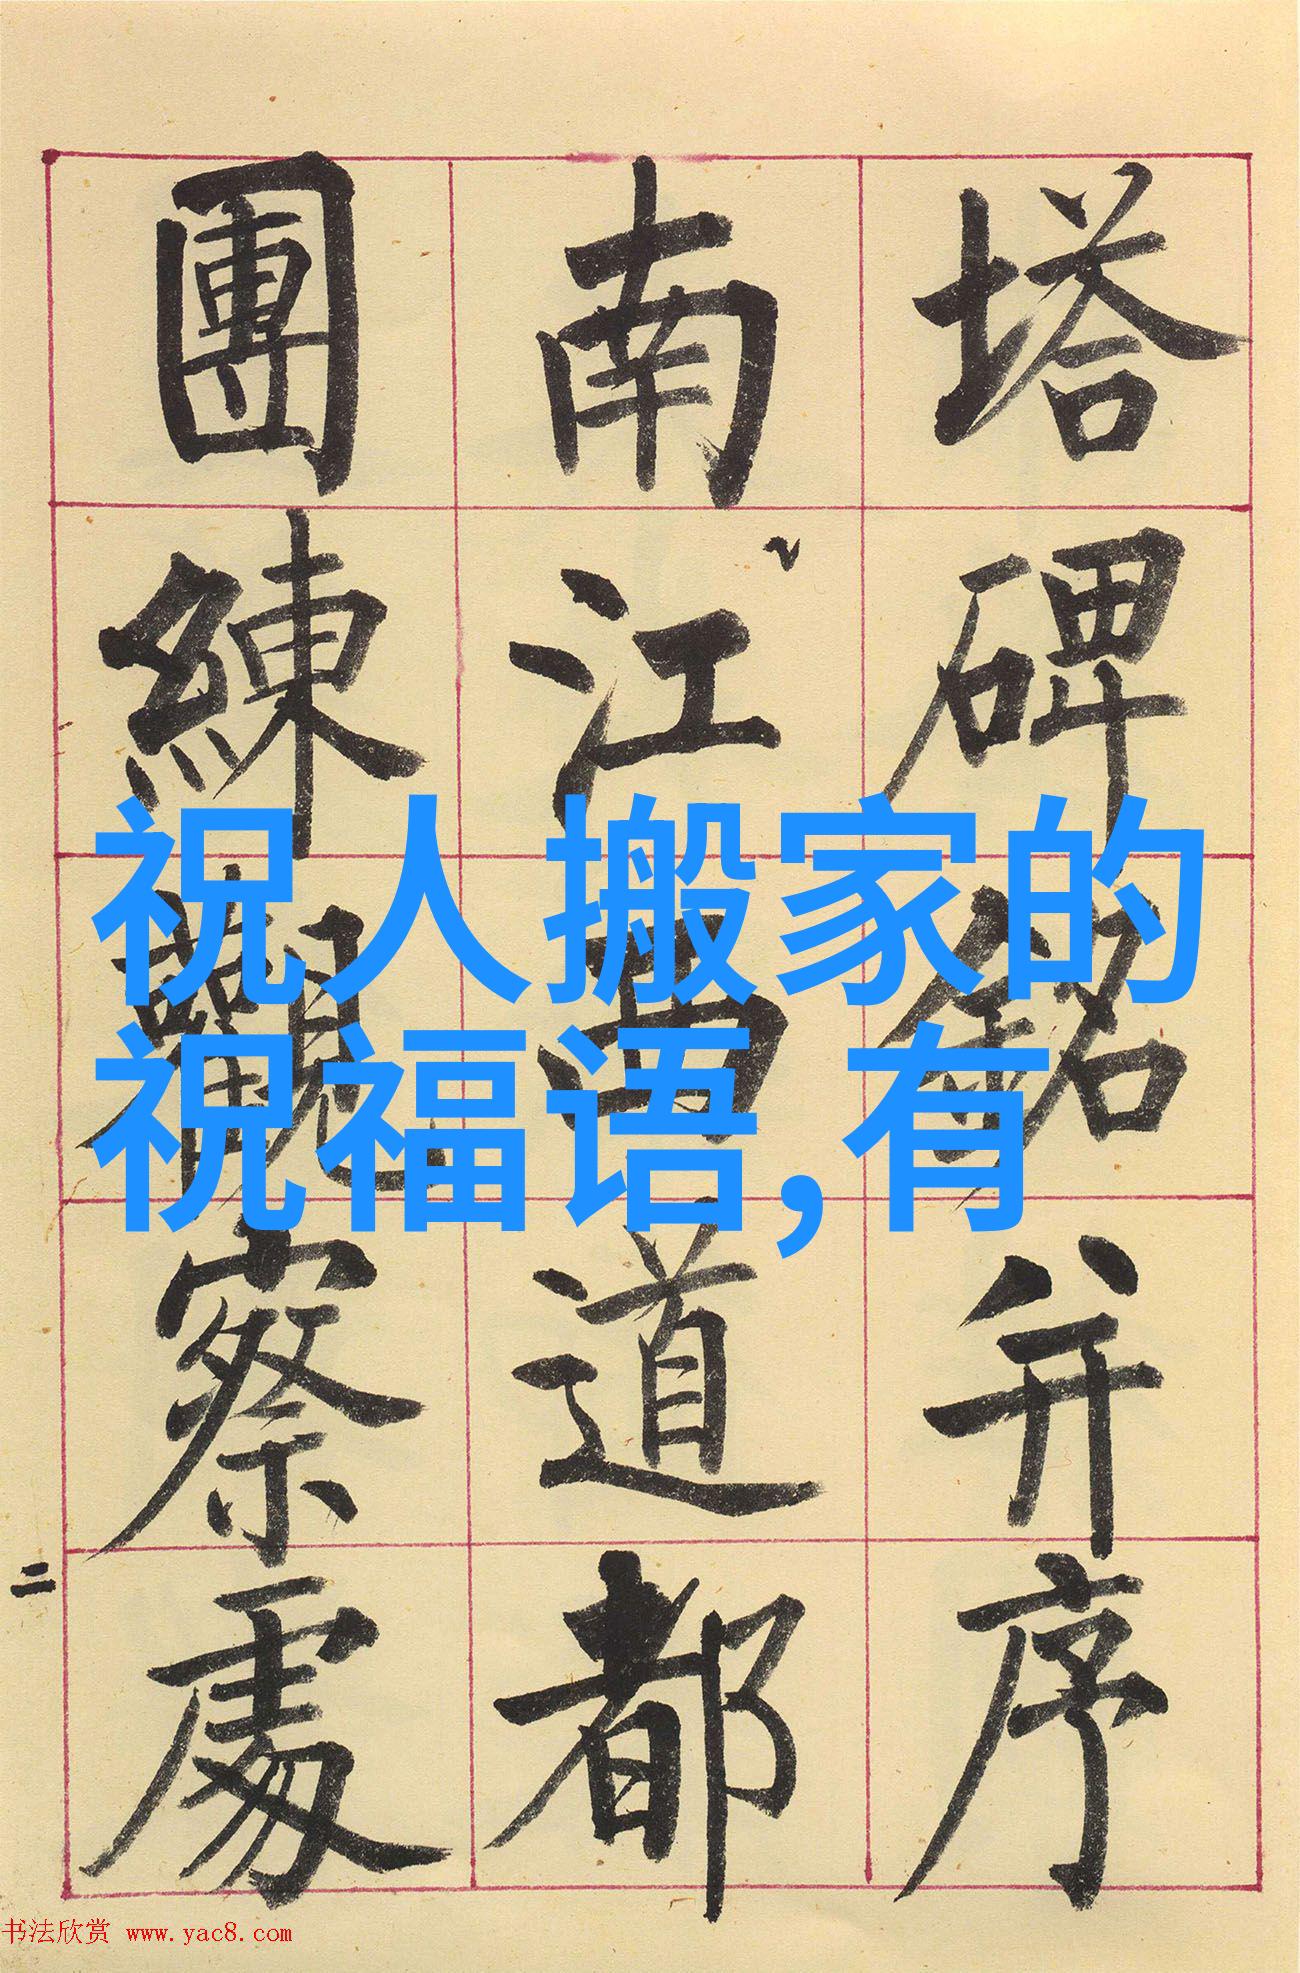 塔碑銘并序
南江西道都
團練觀察處
二
祝人搬家的
祝福语,有
书法欣赏 www.yac8.com